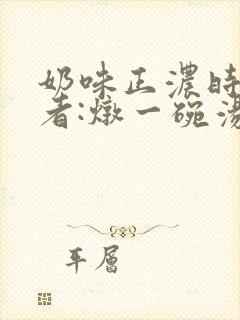 奶味正濃時
者:燉一碗湯
平層